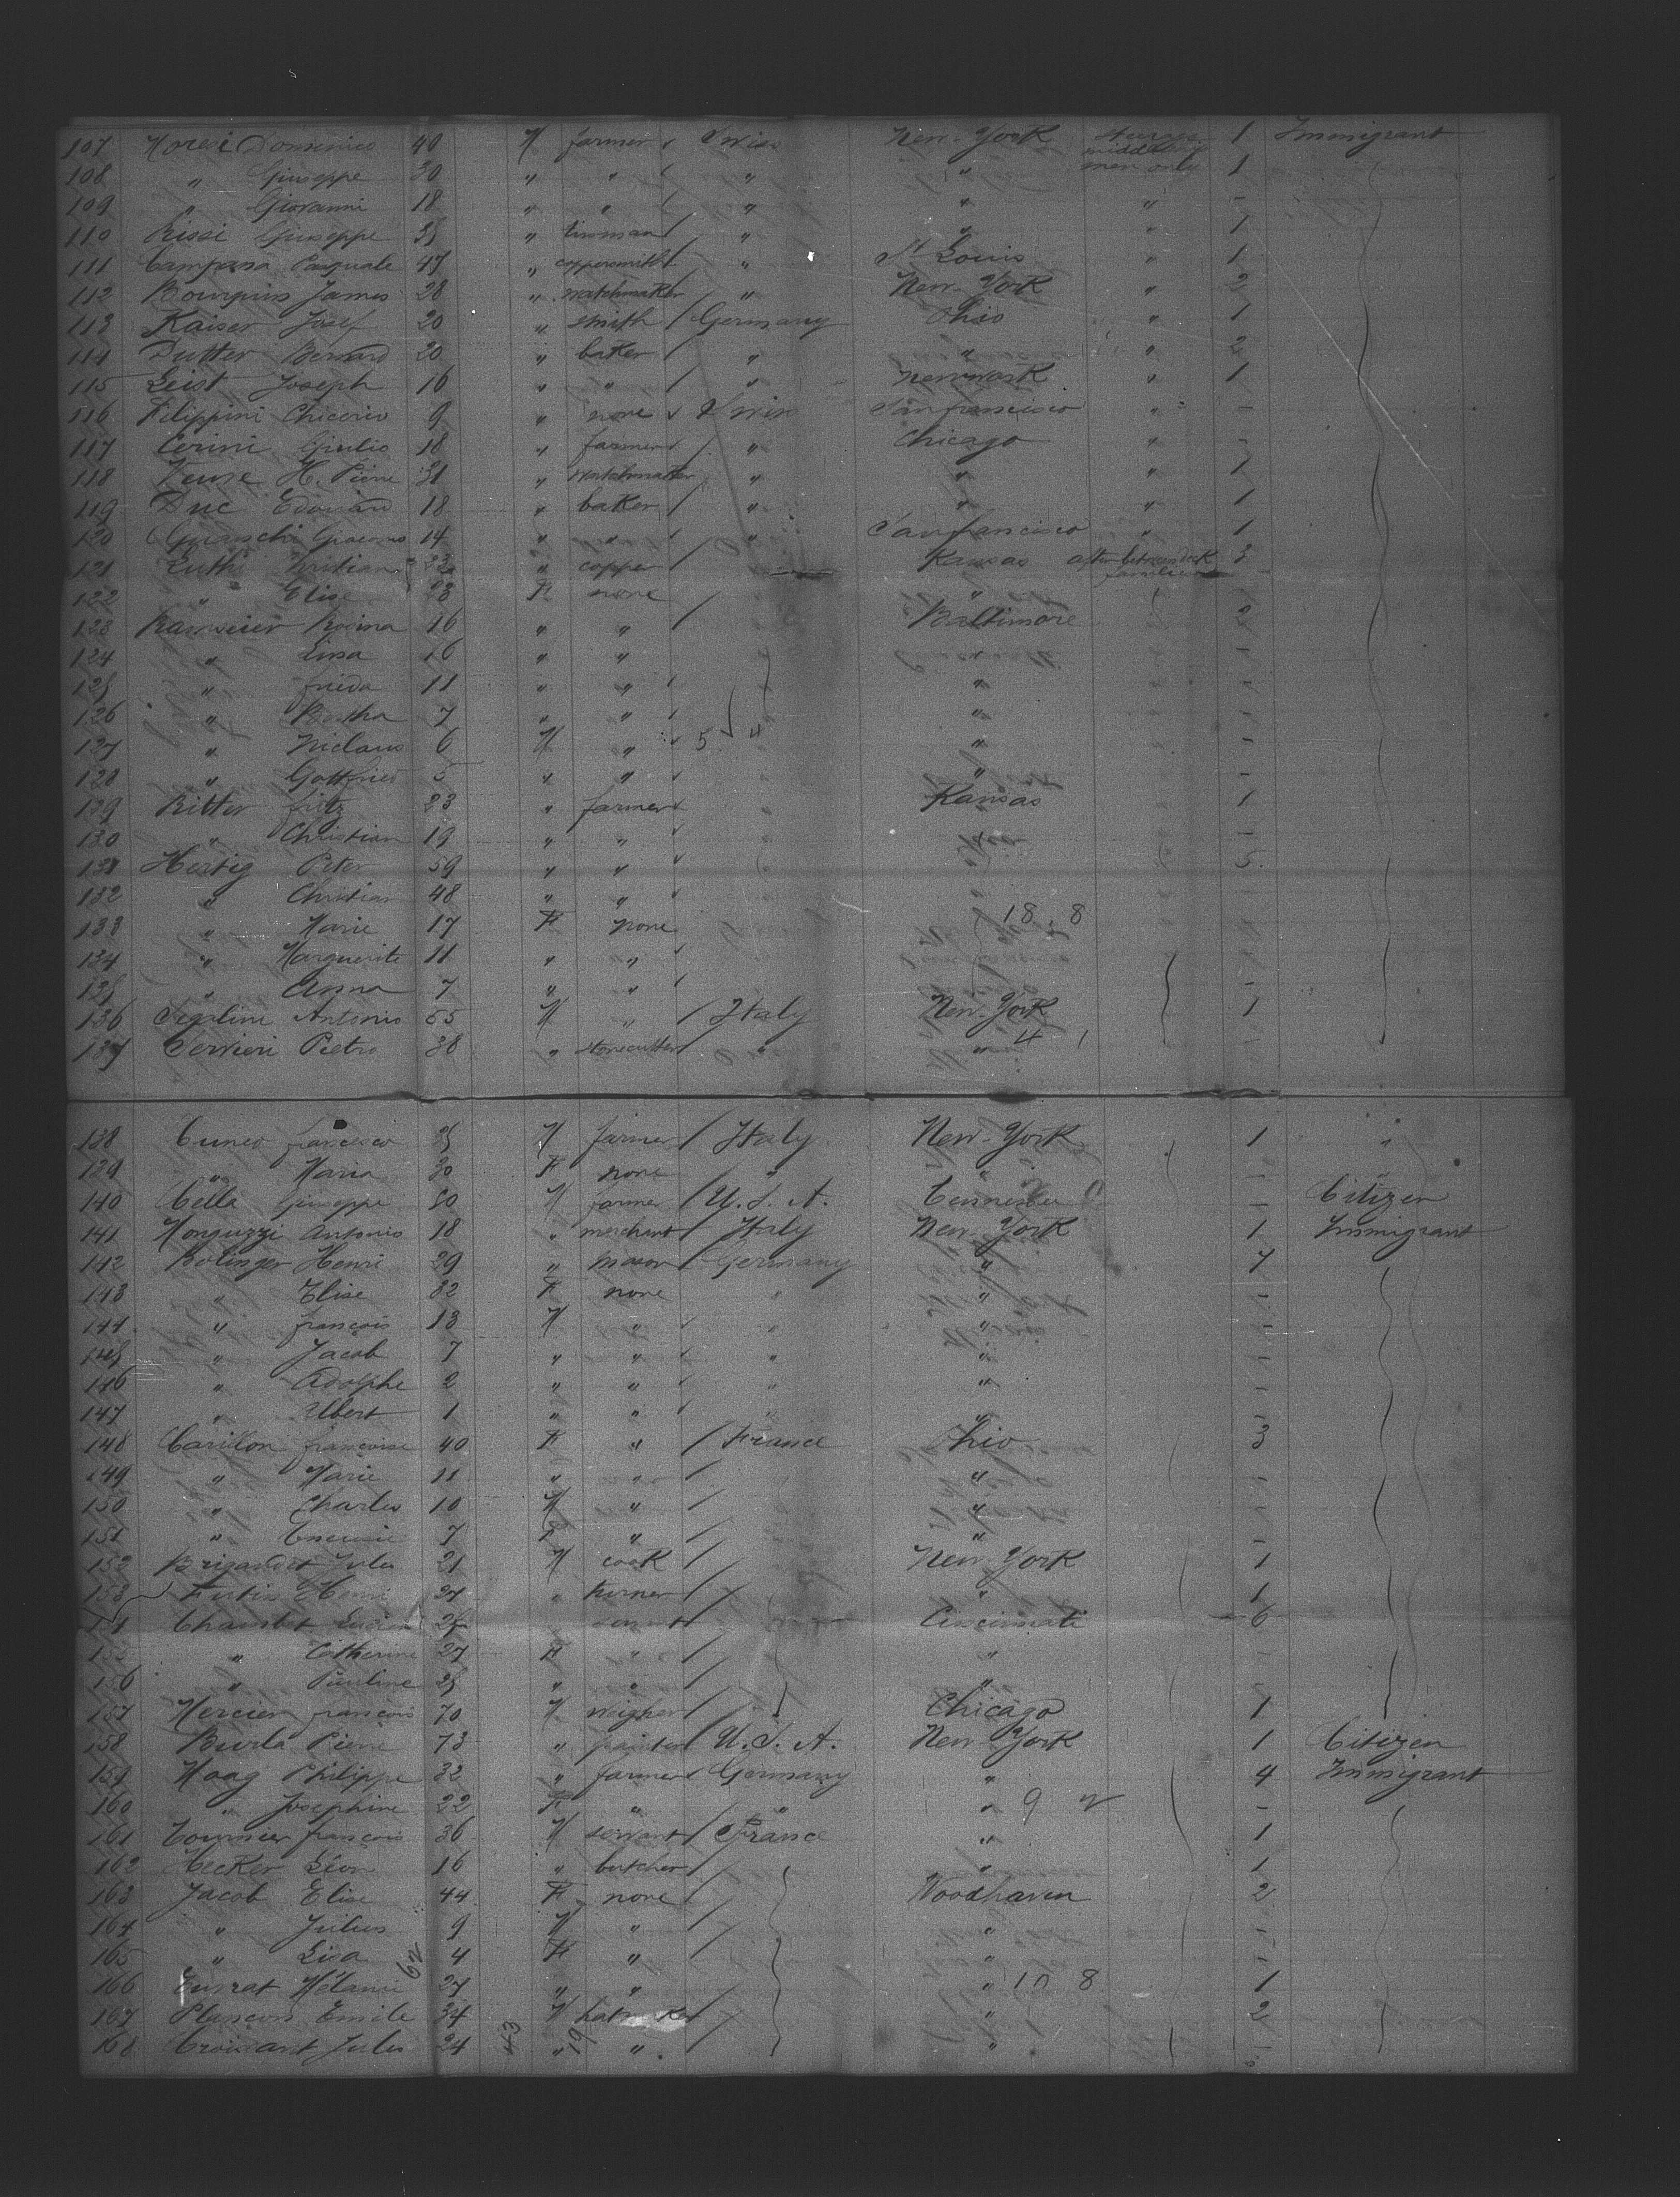 107 Moresi Domenico 40 M farmer Swiss New-York Steerage middle way men only 1 Immigrant
108 " Giuseppe 30 " " " " 1
109 " Giovanni 18 " " " " " -
110 Rissi Giuseppe 35 " tinman " " " 1
111 Campana Pasquale 47 " coppersmith " St Louis " 1
112 James 28 " watchmaker " New-York " 2
113 Kaiser Josef 20 " smith Germany Ohio " 1
114 Dutter Bernard 20 " baker " " " 2
115 Geist Joseph 16 " " " Newwark " 1
116 Filippini Chicorio 9 " none Swiss Sanfrancisco " -
117 Cerini Giulio 18 " farmer " Chicago " -
118 H. Pierre 31 " watchmaker " " " 1
119 Duc Edouard 18 " baker " " " 1
120 Giacomo 14 " " " Sanfrancisco " 1
121 Luthi Christian 33 " copper Kansas after between deck families 3
122 " Elise 28 F none " -
123 Ramseier Rosina 16 " " Baltimore 2
124 " Elisa 16 " " " -
125 " frieda 11 " " " -
126 " Bertha 7 " " " -
127 " Niclaus 6 M " 5 4 " -
128 " Gottfried 5 " " " -
129 Ritter fritz 23 " farmer Kansas 1
130 " Christian 19 " " " -
131 Hertig Peter 59 " " " 5
132 " Christian 48 " " " -
133 " Marie 17 F none 18 8 -
134 " Marguerite 11 " " -
135 " Anna 7 " " -
136 Segalini Antonio 55 M " Italy New-York 1
137 Servieri Pietro 38 " stonecutter " " 4 1 -
138 Cuneo francesco 35 M farmer Italy New-York 1 "
139 " Maria 30 F none " " -
140 Cella Giuseppe 50 M farmer U. S. A. Tennessee - Citizen
141 Monguzzi Antonio 18 " merchant Italy New-York 1 Immigrant
142 Bolinger Henri 29 " mason Germany " 7
143 " Elise 32 F none " " -
144 " françois 13 M " " " -
145 " Jacob 7 " " " " -
146 " Adolphe 2 " " " " -
147 " Albert 1 " " " " -
148 Carillon françoise 40 F " France Ohio 3
149 " Marie 11 " " " -
150 " Charles 10 M " " -
151 " 7 F " " -
152 Brigandet Jules 21 M cook New-York 1
153 Henri 24 " turner " 1
154 26 " servant Cincinnati 6
155 " Catherine 27 F " " -
156 " Pauline 25 " " " -
157 Mercier françois 70 M weigher Chicago 1
158 Pierre 73 " painter U. S. A. New-York 1 Citizen
159 Haag Philippe 32 " farmer Germany " 4 Immigrant
160 " Josephine 22 F " " " 9 2 -
161 Tournier françois 36 M servant France " 1
162 Hecker Léon 16 " butcher " 1
163 Jacob Elise 44 F none Woodhaven 2
164 " Julius 9 M " " -
165 " Lisa 4 F " " -
166 Mélanie 27 " " " 10 8 1
167 Plançon Emile 34 M " 2
168 Croissant Jules 24 " " "
62 43 19